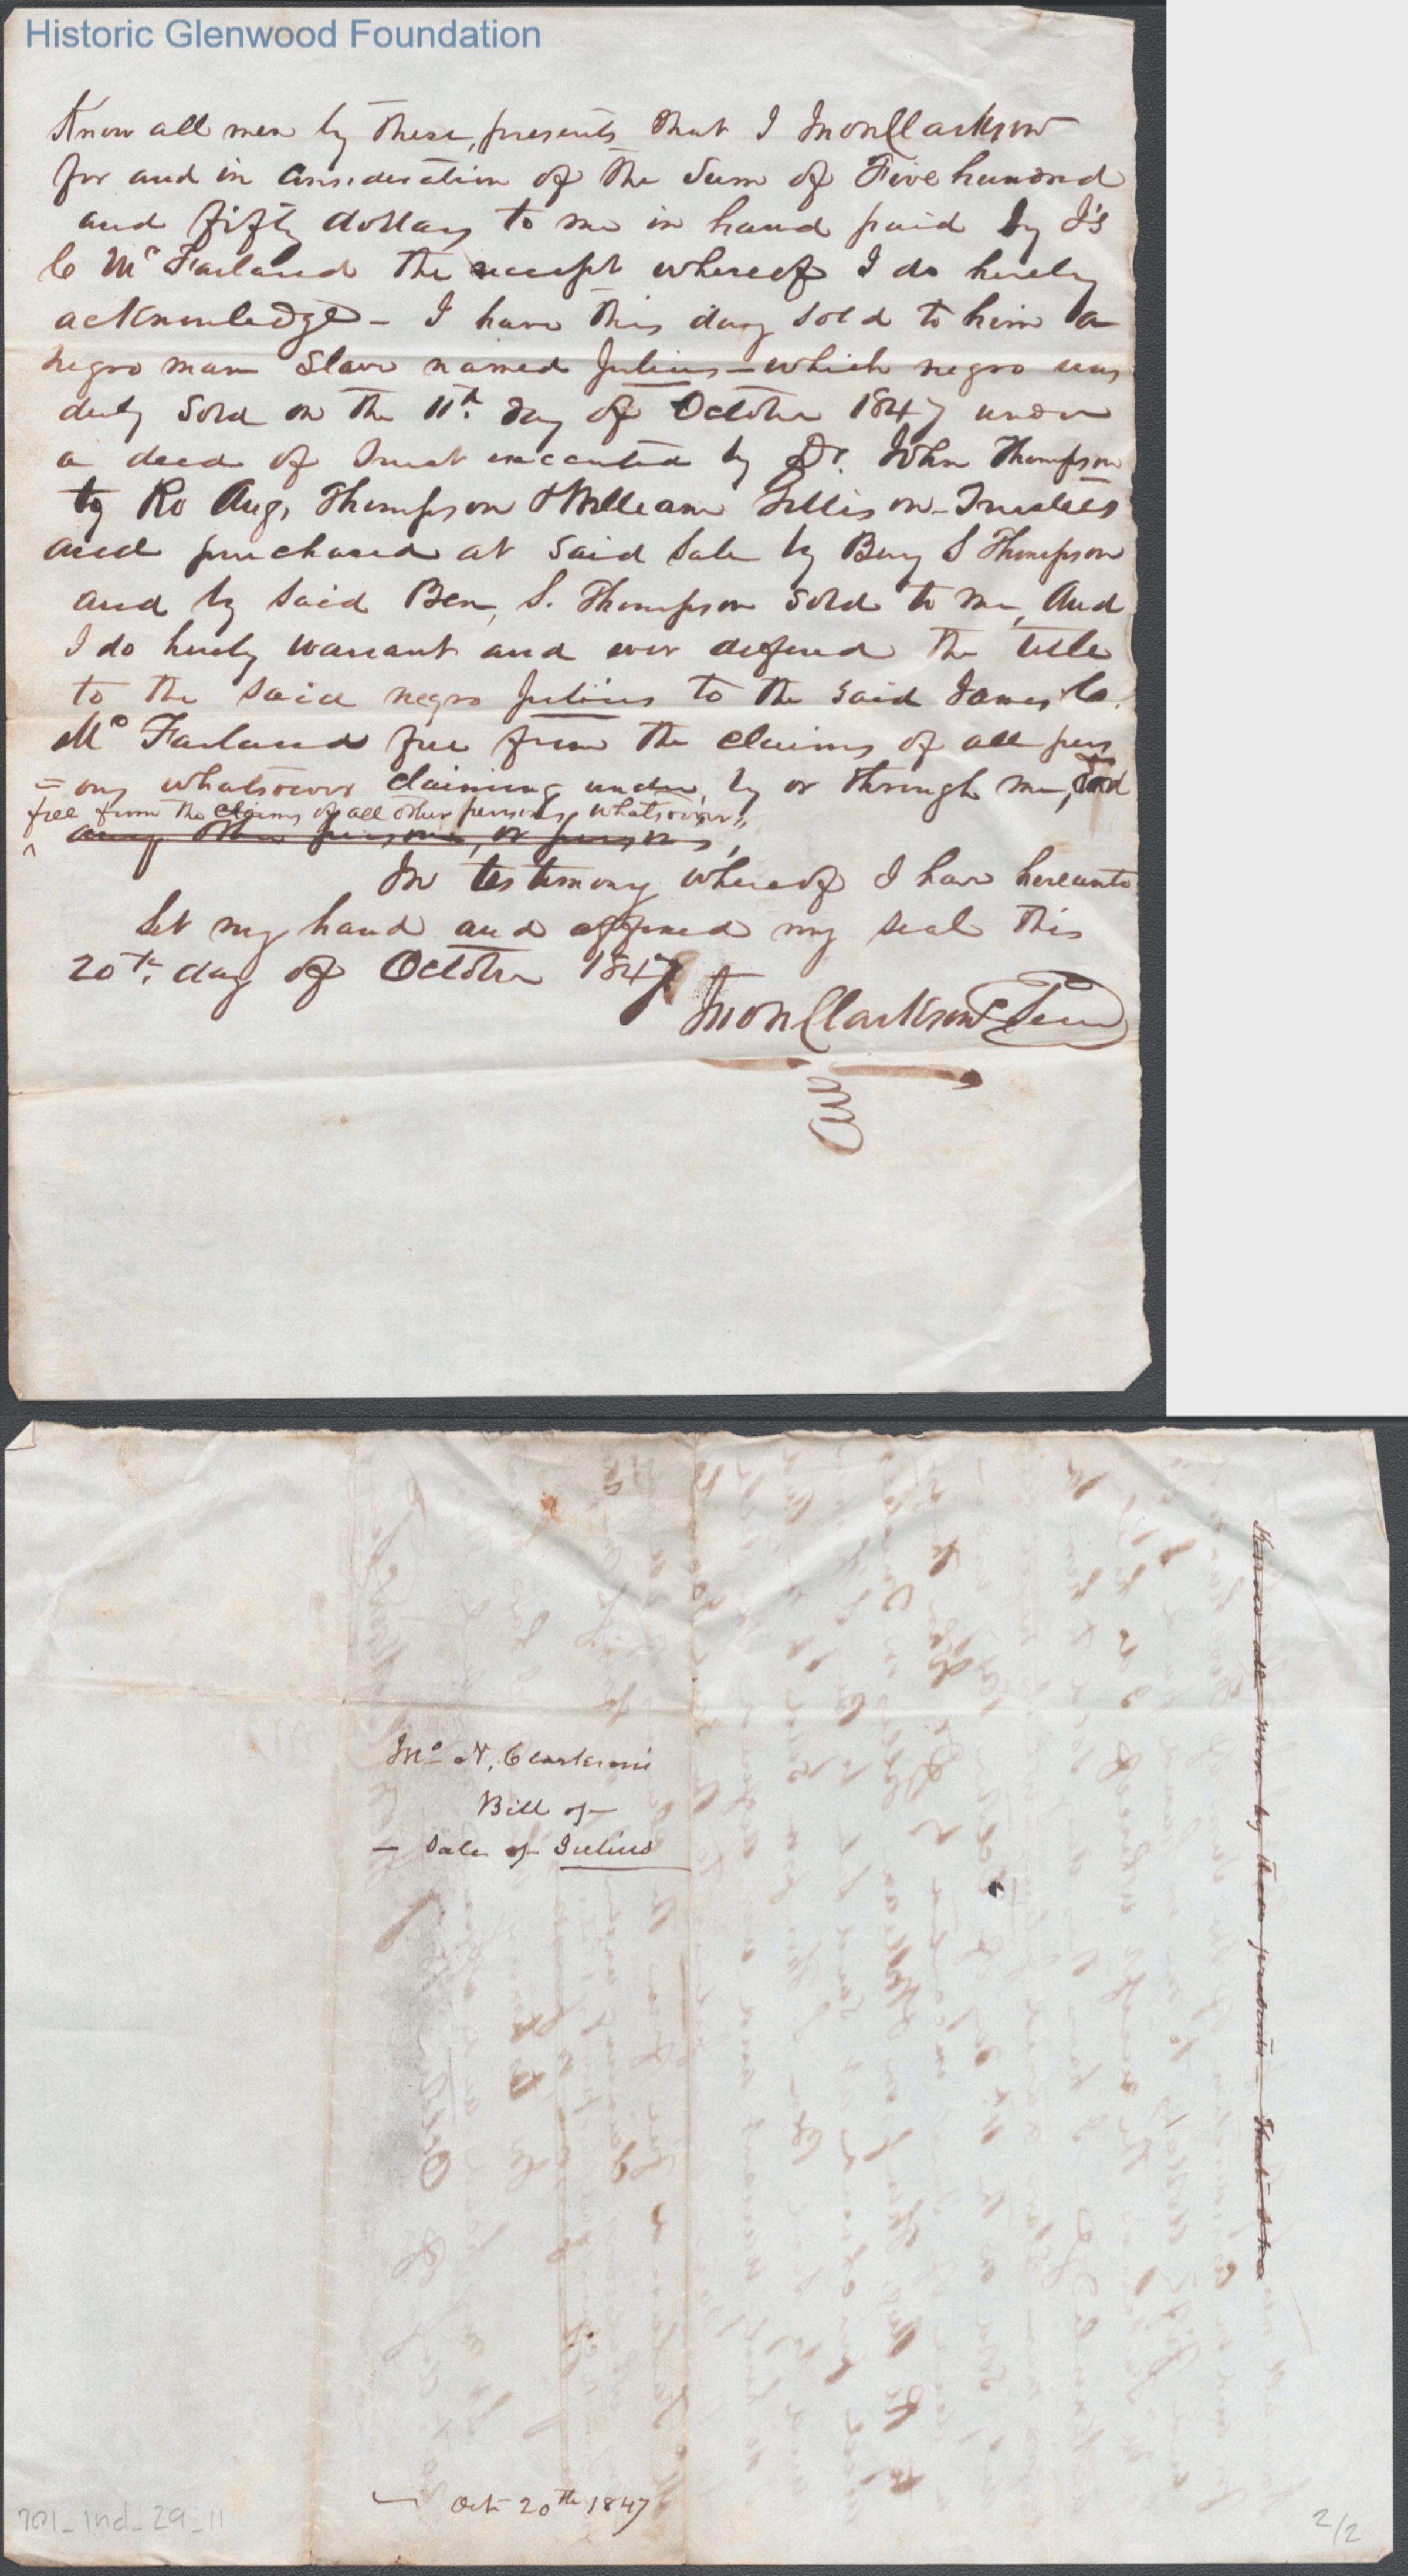 Historic Glenwood Foundation
Know all men by these, presents that I Jno n Clarkson
for and in Consideration of the Sum of Five hundred
and fifty dollars to me in hand paid by J's
C McFarland the receipt whereof I do hereby
acknowledge - I have this day sold to him a
negro man Slave named Julius - which negro was
duly sold on the 11th. day of October 1847 under
a deed of Trust executed by Dr. John Thompson
to Ro Aug, Thompson & William Gillison - Trustees
and purchased at said Sale by Benj S Thompson
and by said Ben, S. Thompson sold to me, And
I do hereby warrant and ever defend the title
to the said negro Julius to the said James C.
Mc Farland free from the claims of all pers
= ons whatsoever claiming under, by or through me, and
free from the claims of all other persons whatsoever,,
^ any other person, or persons,
In testimony whereof I have hereunto
Set my hand and affixed my seal this
20th. day of October 1847
Jno n Clarkson Seal
Jno N. Clarksons
Bill of
- Sale of Julius
Oct 20th 1847
Know all Men by these presents - that I Jno
701_Ind_29_11
2/2